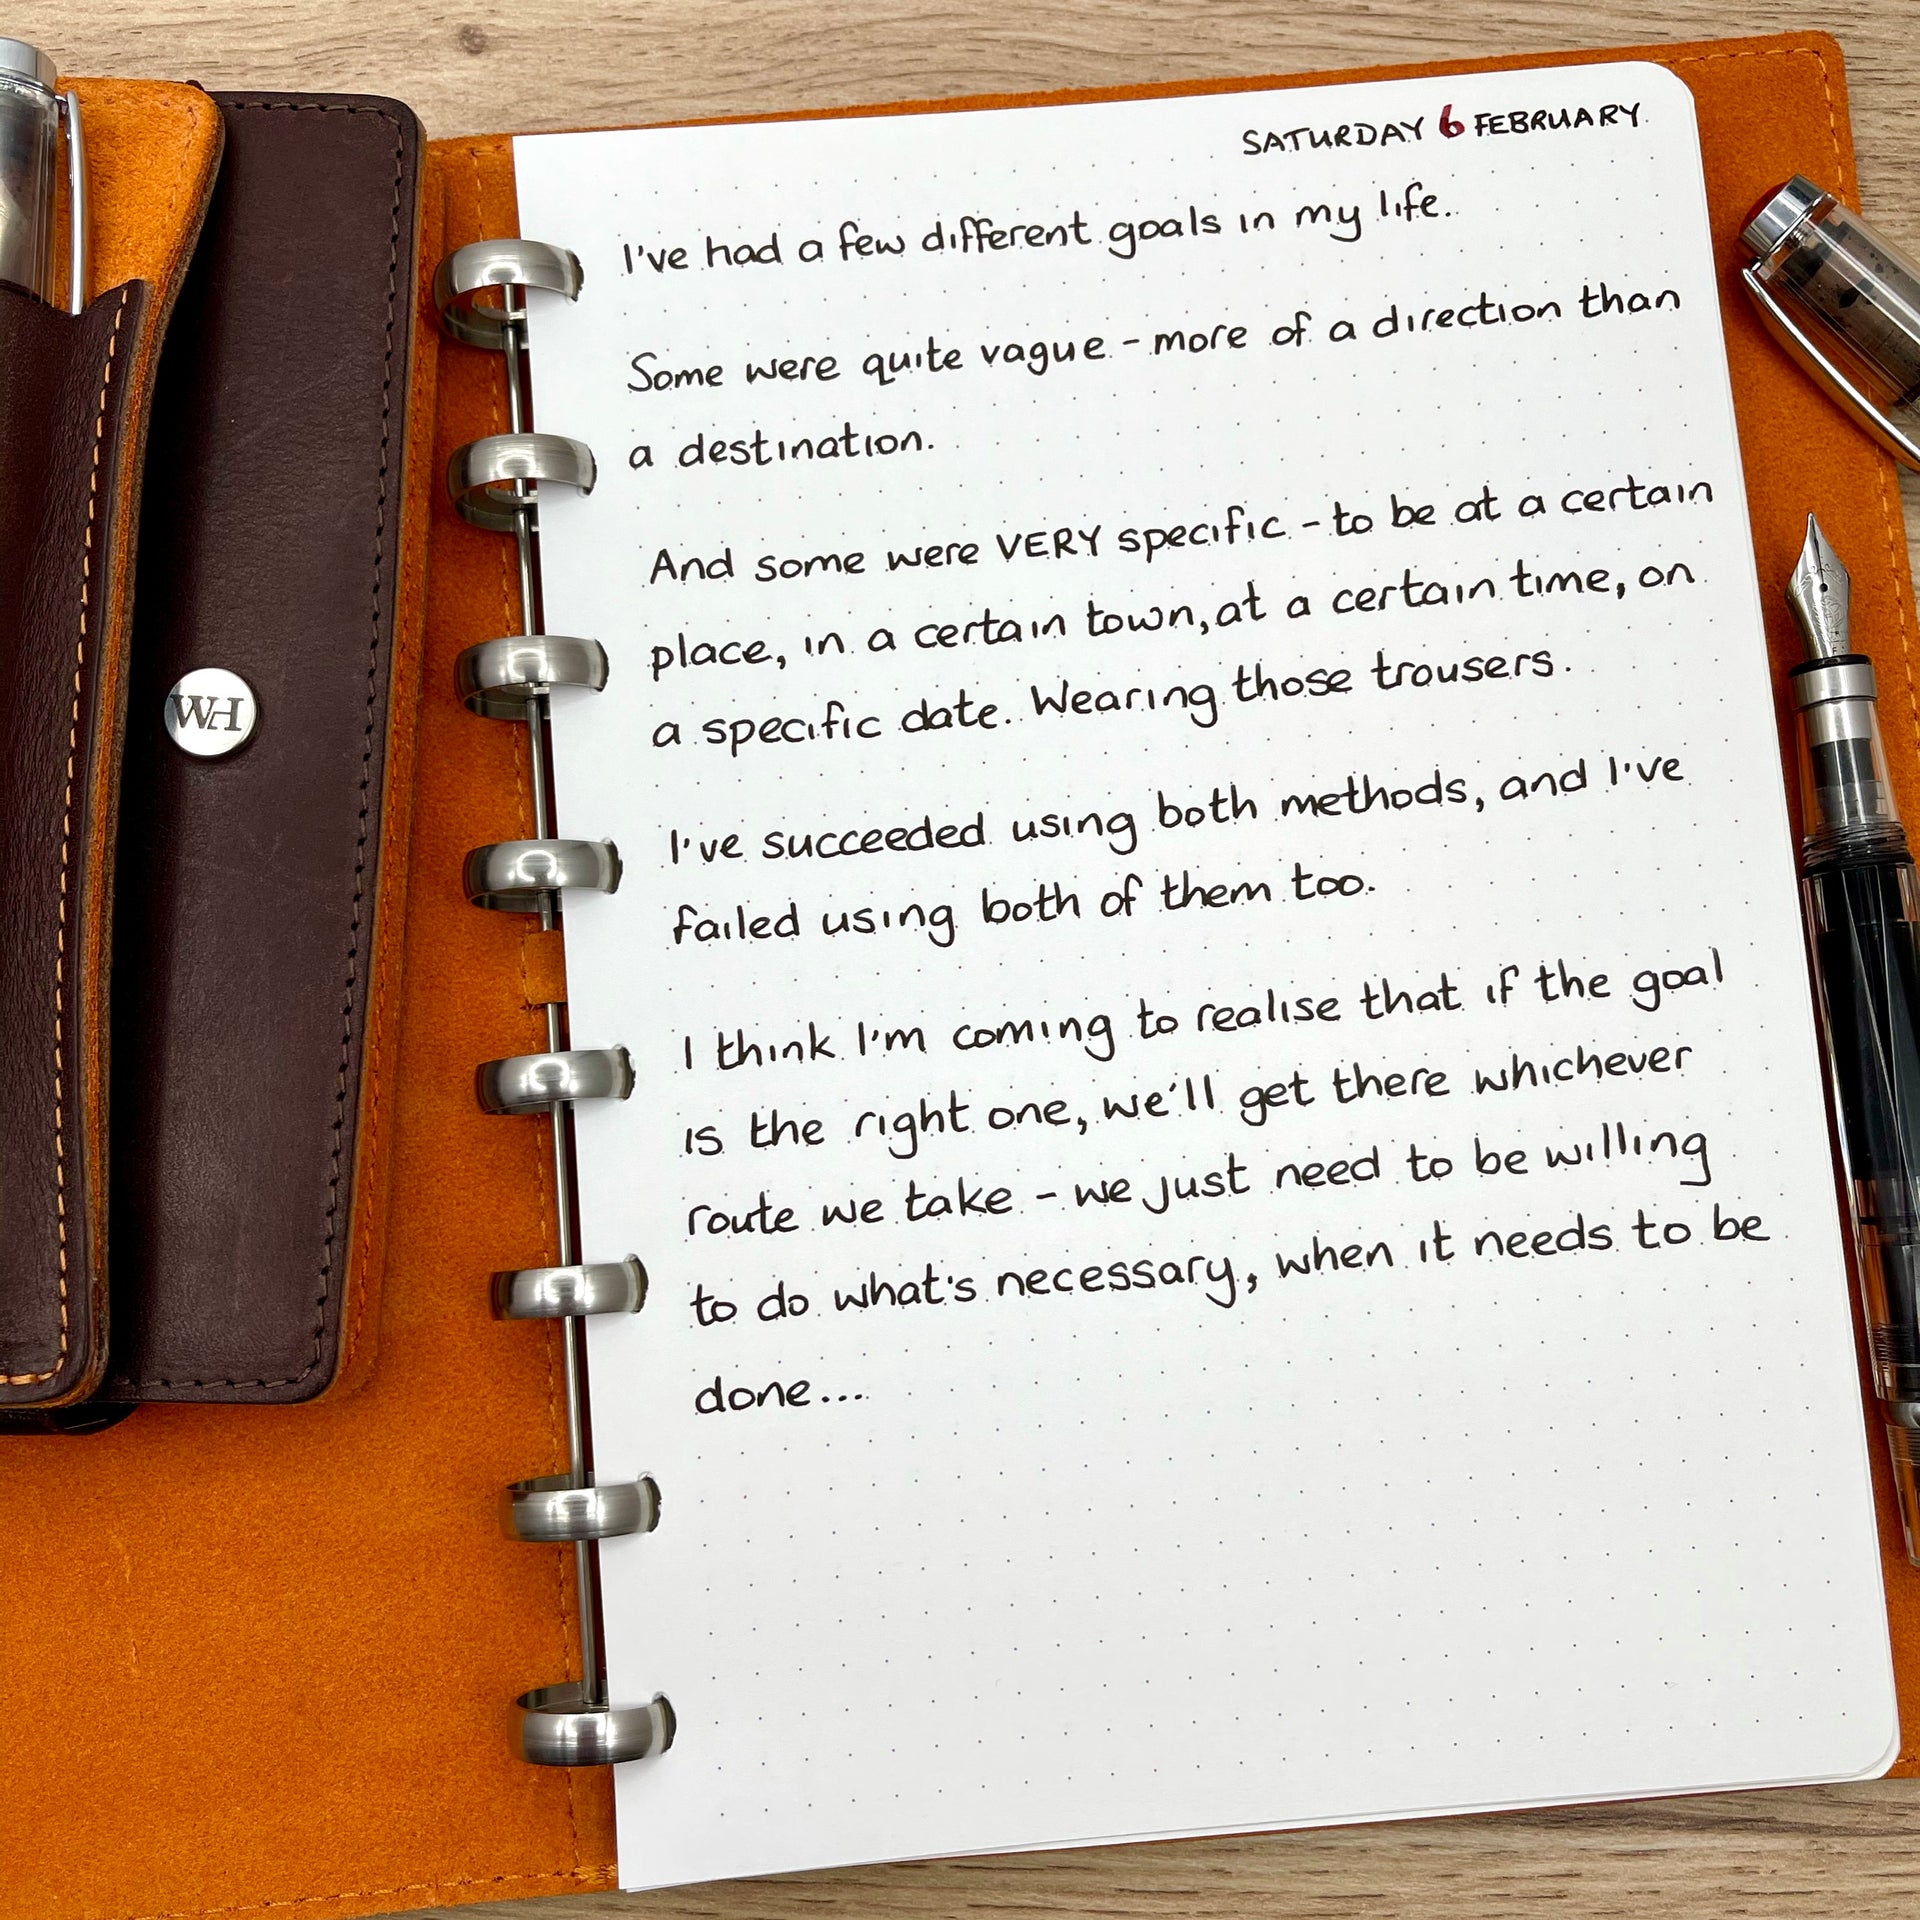 SATURDAY 6 FEBRUARY.
I've had a few different goals in my life.
Some were quite vague - more of a direction than
a destination.
And some were VERY specific - to be at a certain
place, in a certain town, at a certain time, on
a specific date. Wearing those trousers.
I've succeeded using both methods, and I've
failed using both of them too.
I think I'm coming to realise that if the goal
is the right one, we'll get there whichever
route we take - we just need to be willing
to do what's necessary, when it needs to be
done...
WH